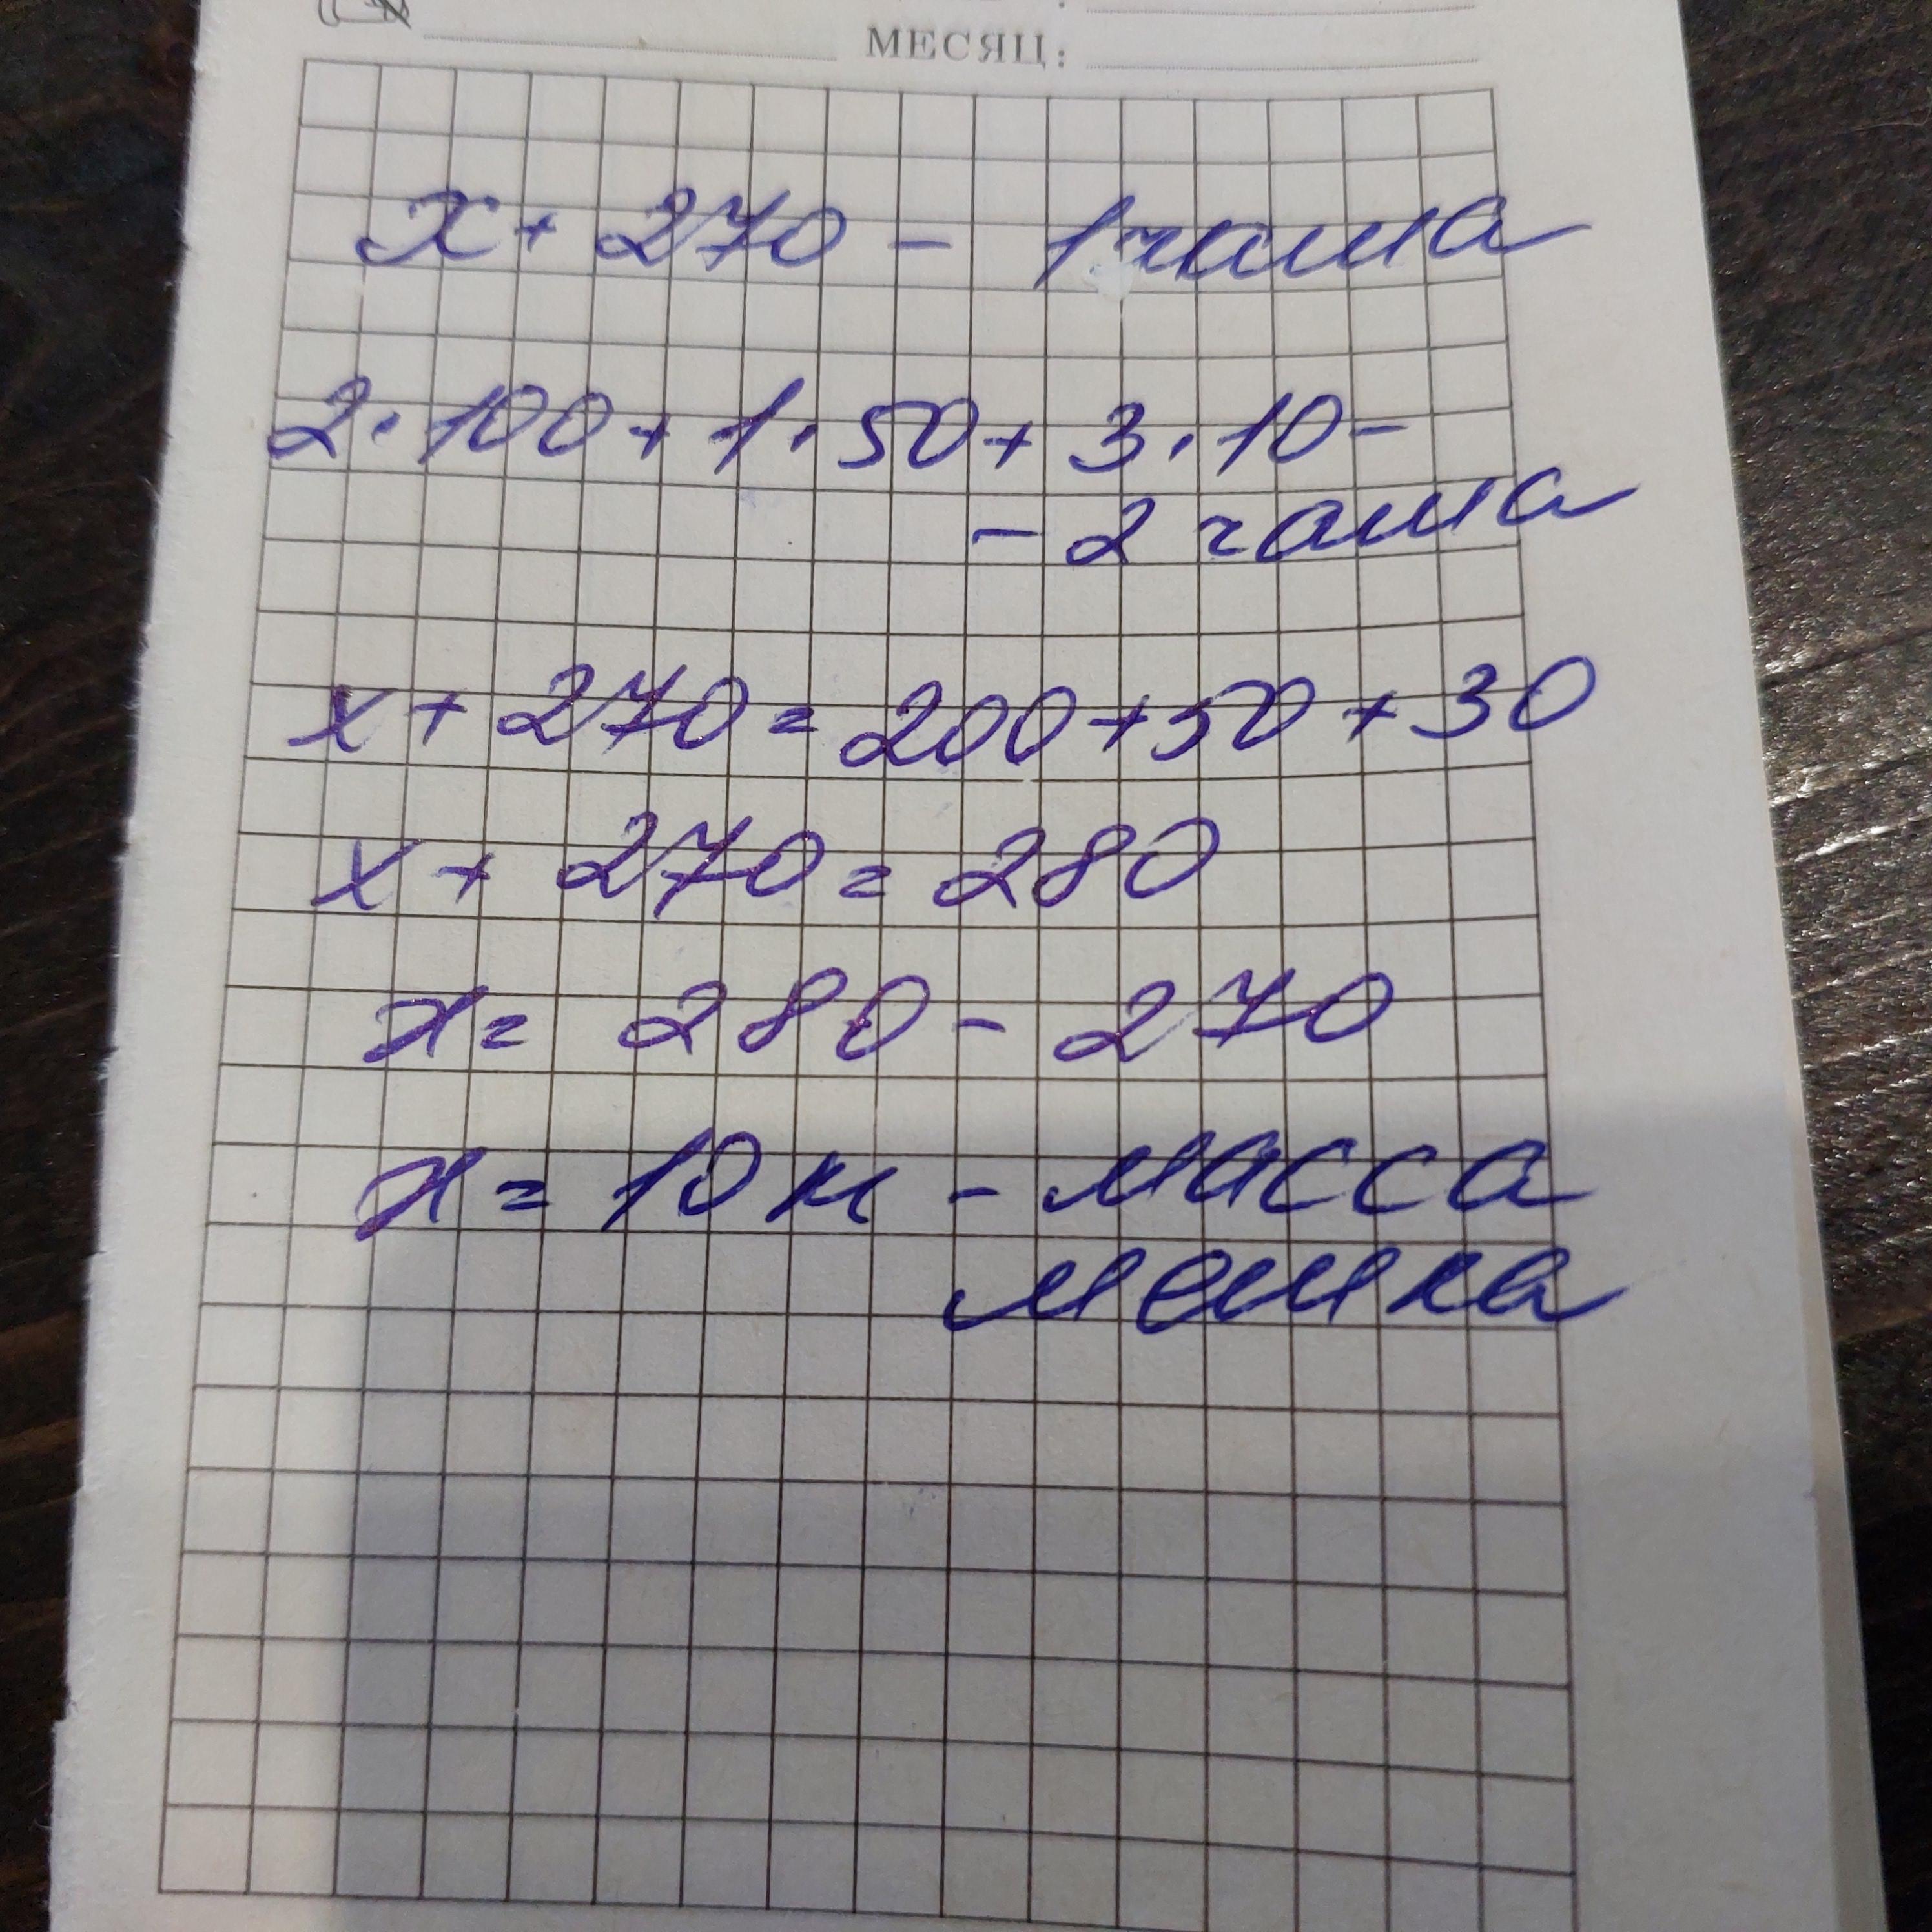 МЕСЯЦ:
x + 270 - 1 чаша
2 · 100 + 1 · 50 + 3 · 10 -
- 2 чаша
x + 270 = 200 + 50 + 30
x + 270 = 280
x = 280 - 270
x = 10 кг - масса
мешка